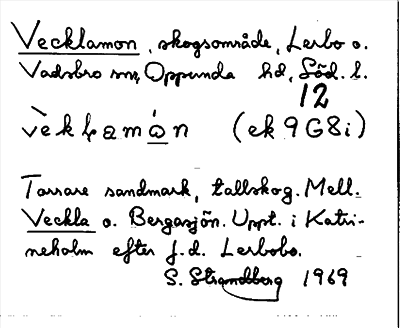 Vecklamon, skogsområde, Lerbo o.
Vadsbro snr, Oppunda hd, Söd. l.
12
vèklamón (ek 9G8i)
Torrare sandmark, tallskog. Mell.
Veckla o. Bergasjön. Uppt. i Katri-
neholm efter f.d. Lerbobo.
S. Strandberg 1969